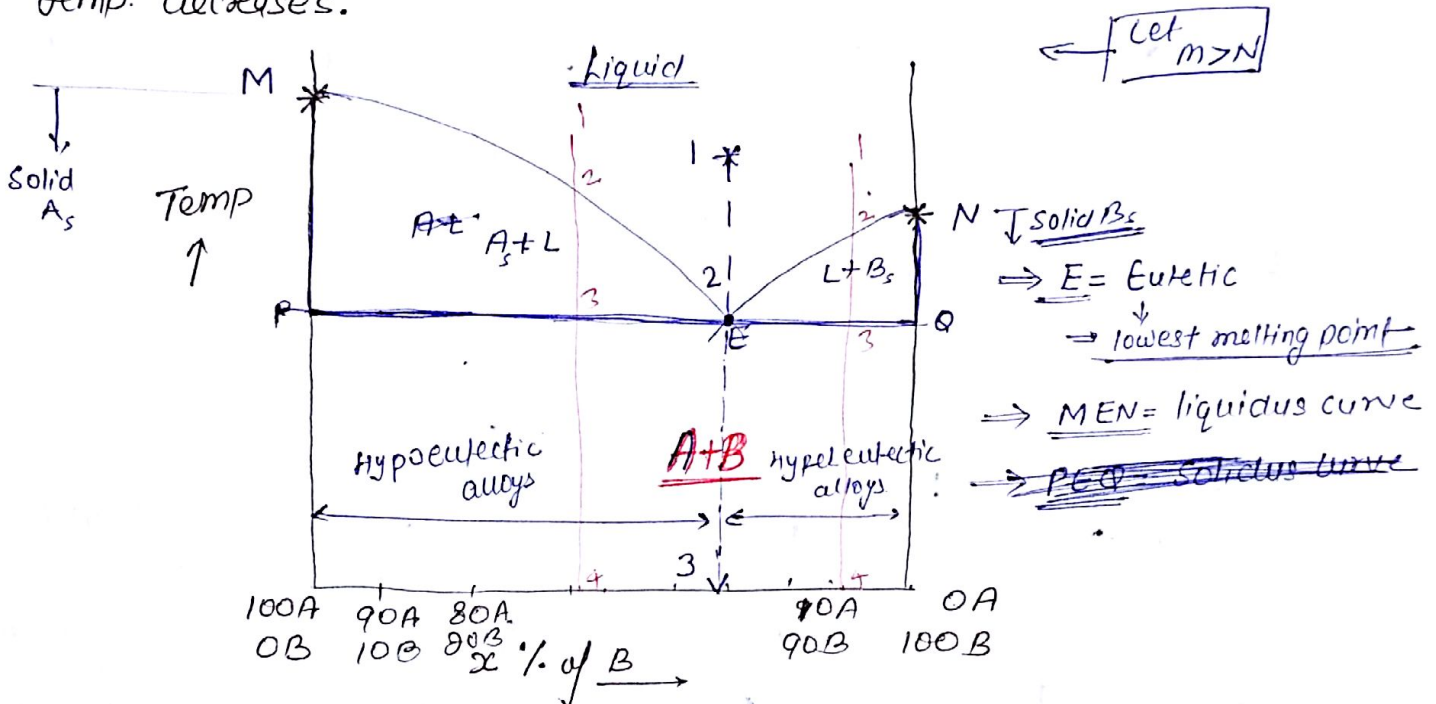 temp. decreases.
Let
m>N
M
Liquid
1
1
1
Solid
As
Temp
2
2
N solid Bs
At As + L
2
L + Bs
⇒ E = Eutetic
3
P
E
3
Q
⇒ lowest melting point
⇒ MEN = liquidus curve
Hypoeutectic
alloys
A+B
Hypereutectic
alloys
⇒ PEQ = Solidus curve
3
4
4
100A 90A 80A 10A 0A
0B 10B 20B 90B 100B
x % of B